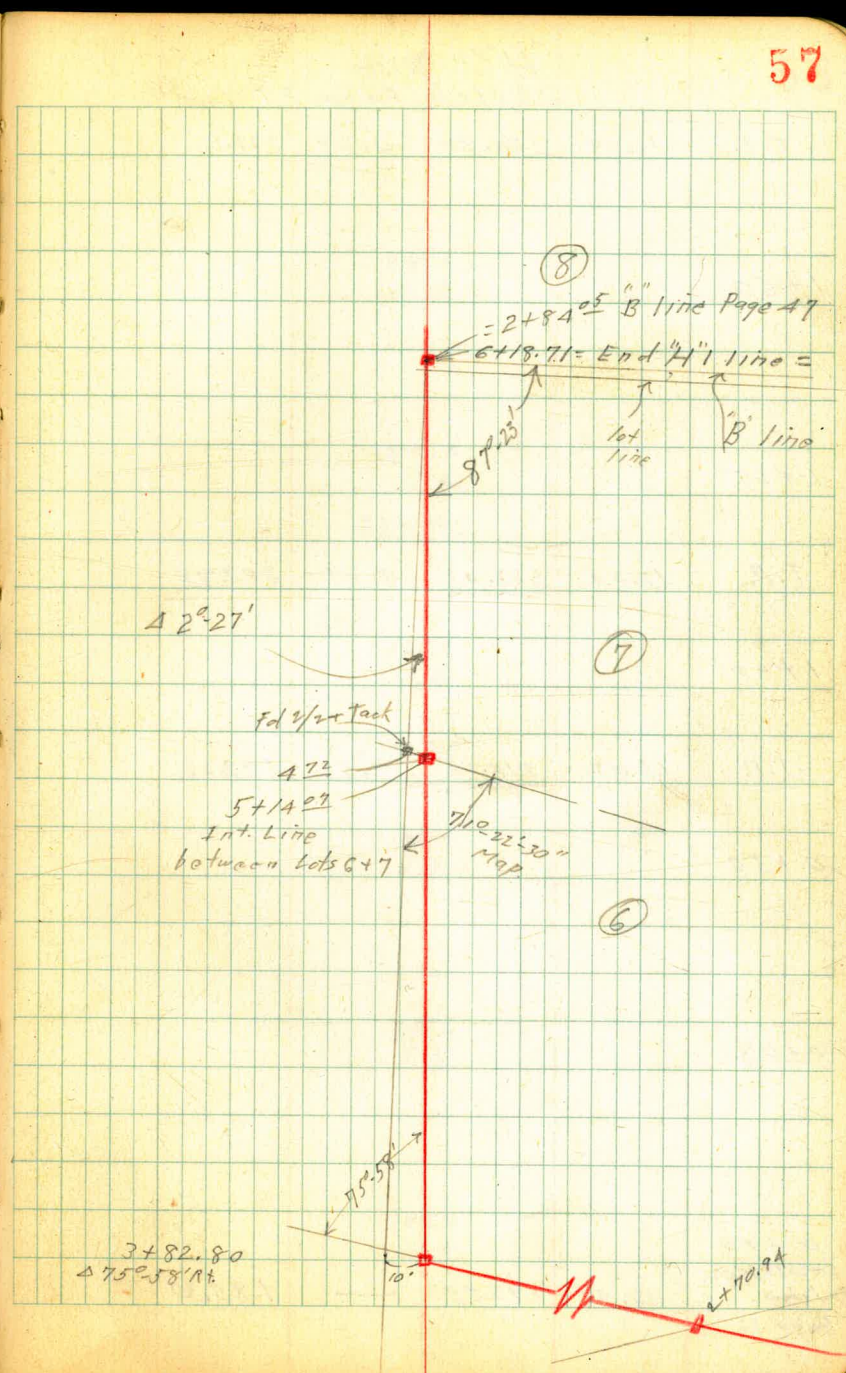 57
8
= 2+84.05 "B" line Page 47
6+18.71 = End "H" line =
lot
line
"B" line
87°-23'
Δ 2°-27'
7
Fd 2/2+ Tack
4.72
5+14.07
Int. Line
between Lots 6+7
71°-22'-30"
Map
6
75°-58'
3+82.80
Δ 75°-58' Rt.
10'
2+70.94